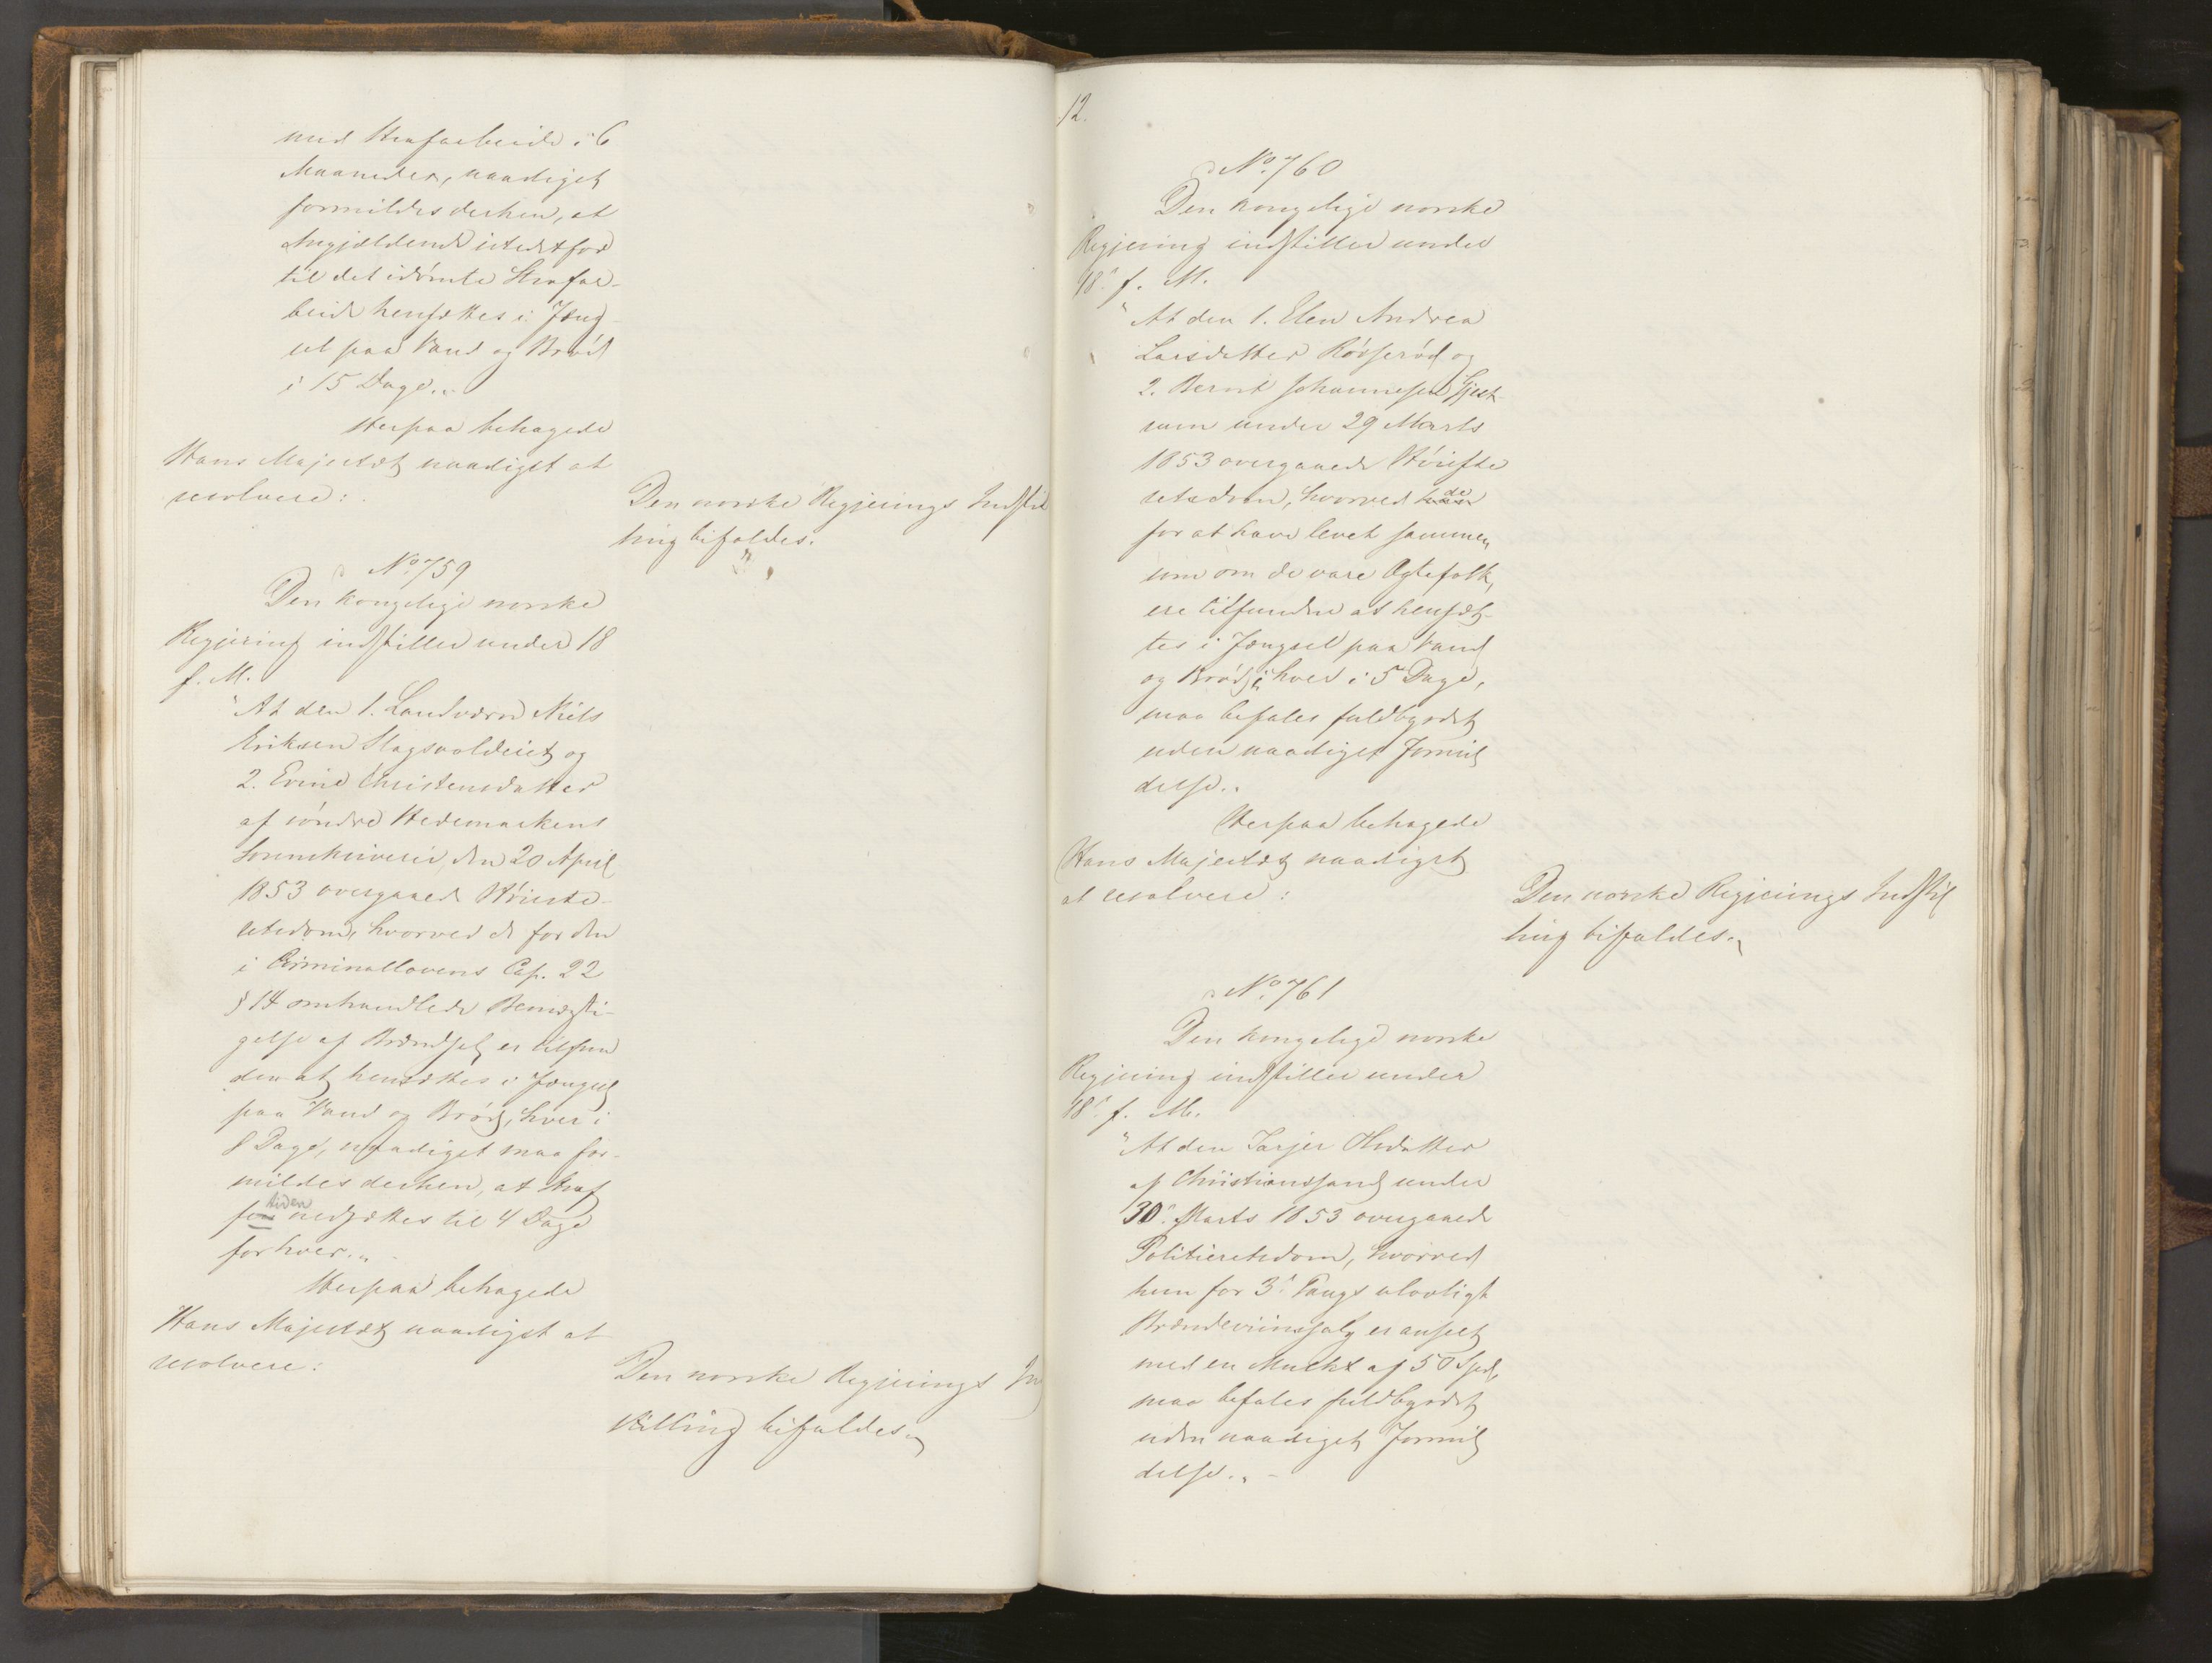 med Strafarbeide i 6
Maaneder, naadigst
formildes derhen, at
Angjældende istedetfor
til det idømte Strafar-
beide hensættes i Fæng-
sel paa Vand og Brød
i 15 Dage.„
Herpaa behagede
Hans Majestæt naadigst at
resolvere:
Den norske Regjerings Indstil
ling bifaldes.
No 759
Den kongelige norske
Regjering indstiller under 18
f. M.
"At den 1. Landværn Niels
Eriksen Slagsvoldeiet og
2. Erine Christensdatter
af søndre Hedemarkens
Sorenskriveri, den 20 April
1853 overgaaede Høieste-
retsdom, hvorved de for den
i Criminallovens Cap. 22
§ 14 omhandlede Bemægti-
gelse af Brændsel er tilfun
den at hensættes i Fængsel
paa Vand og Brød, hver i
8 Dage, naadigst maa for-
mildes derhen, at Straf
fetiden nedsættes til 4 Dage
for hver.„
Herpaa behagede
Hans Majestæt naadigst at
resolvere:
Den norske Regjerings Ind
stilling bifaldes.
12.
No 760
Den kongelige norske
Regjering indstiller under
18. f. M.
"At den 1. Elen Andrea
Larsdatter Rørserød og
2. Bernt Johannesen Gjest-
rum under 29 Marts
1853 overgaaede Høieste
retsdom, hvorved de
for at have levet sammen
som om de vare Ægtefolk,
ere tilfundne at hensæt-
tes i Fængsel paa Vand
og Brød, hver i 5 Dage,
maa befales fuldbyrdet
uden naadigst Formil
delse.„
Herpaa behagede
Hans Majestæt naadigst
at resolvere:
Den norske Regjerings Indstil
ling bifaldes.
No 761
Den kongelige norske
Regjering indstiller under
18. f. M.
"At den Tarjer Olsdatter
af Christianssand under
30. Marts 1853 overgaaede
Politieretsdom, hvorved
hun for 3. Gangs ulovligt
Brændeviinssalg er anseet
med en Mulkt af 50 Spd,
maa befales fuldbyrdet
uden naadigst Formil
delse.„